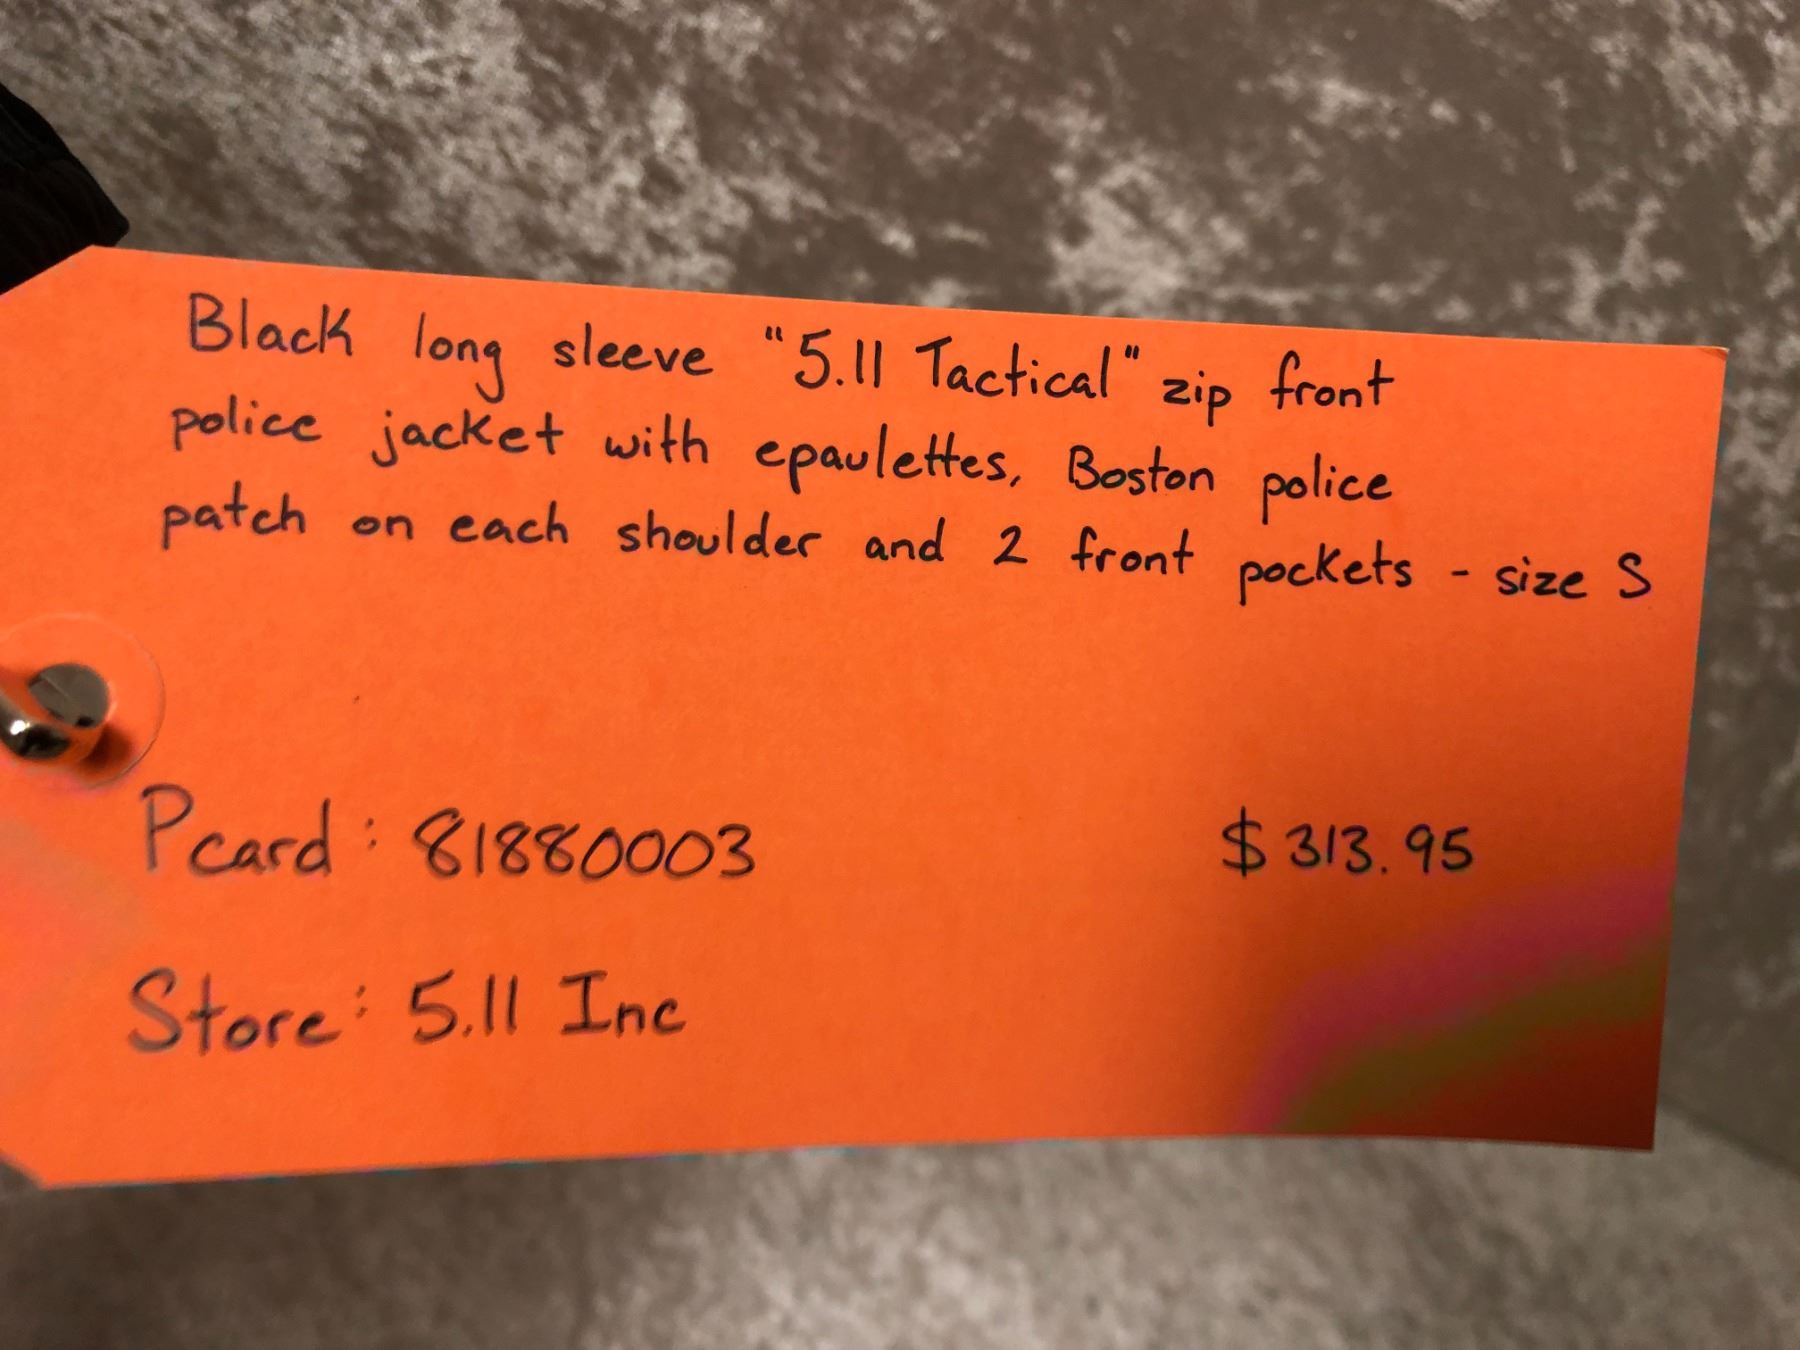 Black long sleeve "5.11 Tactical" zip front
police jacket with epaulettes, Boston police
patch on each shoulder and 2 front pockets - size S
Pcard: 81880003 $313.95
Store: 5.11 Inc